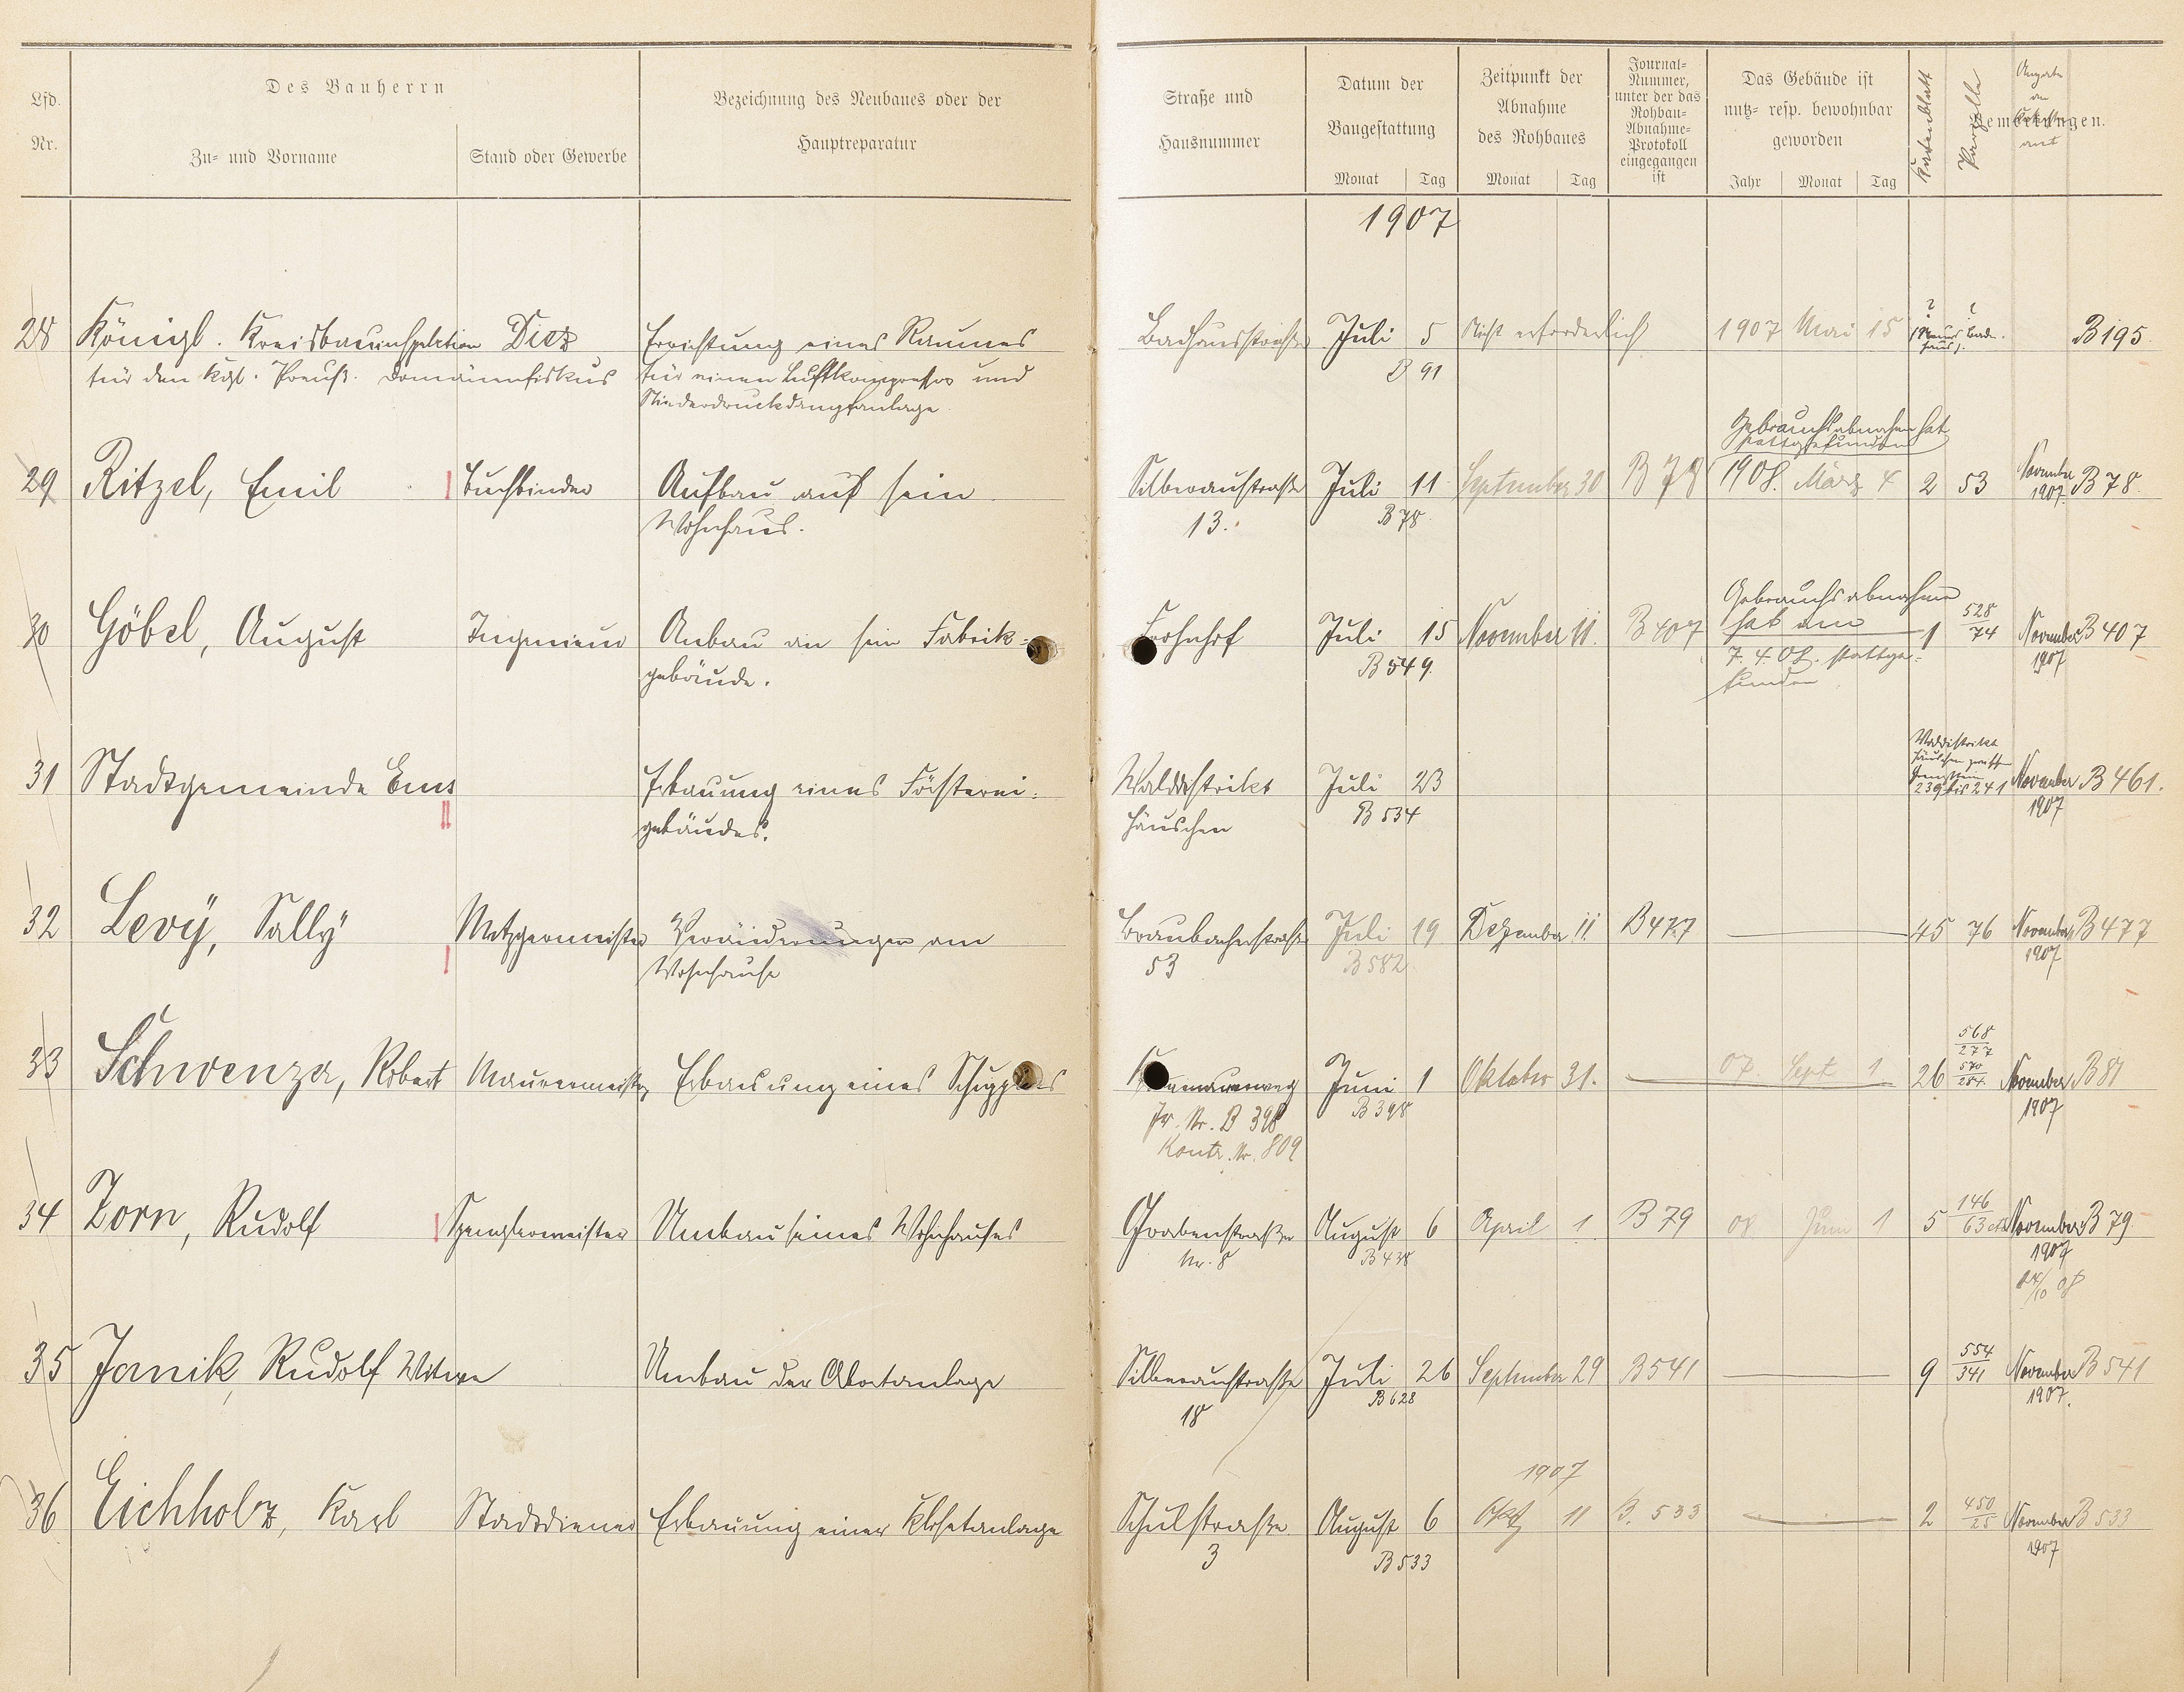 Lfd. Nr.
Des Bauherrn
Zu- und Vorname
Stand oder Gewerbe
Bezeichnung des Neubaues oder der
Hauptreparatur
Straße und
Hausnummer
Datum der
Baugestattung
Monat Tag
Zeitpunkt der
Abnahme
des Rohbaues
Monat Tag
Journal-
Nummer,
unter der das
Rohbau-
Abnahme-
Protokoll
eingegangen
ist
Das Gebäude ist
nutz- resp. bewohnbar
geworden
Jahr Monat Tag
Kartenblatt
Parzelle
Bemerkungen.
1907
28 Königl. Kreisbauinspektion Diez Errichtung eines Raumes Badhausstraße Juli 5 Nicht erforderlich 1907 Mai 15 B 195
für den Kgl. Preuß. Domänenfiskus für einen Luftkompressor und B 91
Niederdruckdampfanlage
Gebrauchsabnahme hat
stattgefunden
29 Ritzel, Emil Buchbinder Aufbau auf sein Silberaustraße Juli 11 September 30 B 78 1908. März 4 2 53 November B 78
Wohnhaus. 13. B 78 1907.
Gebrauchsabnahme
30 Göbel, August Ingenieur Anbau an sein Fabrik- Frohnhof Juli 15 November 11. B 407 hat am 1 528/74 November B 407
gebäude. B 549. 7. 4. 08. stattge- 1907
funden
Walddistrikt
Häuschen
31 Stadtgemeinde Ems Erbauung eines Försterei- Walddistrikt Juli 23 239 bis 241 November B 461.
gebäudes. Häuschen B 534 1907
32 Levÿ, Sallÿ Metzgermeister Veränderungen am Braubacherstraße Juli 19 Dezember 11. B 477 45 76 November B 477
Wohnhause 53 B 582 1907
568/277
33 Schwenzer, Robert Maurermeister Erbauung eines Schuppens Juni 1 Oktober 31. 07. Sept 1 26 570/284. November B 81
Jr. Nr. B 398 B 398 1907
Kontr. Nr. 809
34 Zorn, Rudolf Spenglermeister Umbau seines Wohnhauses Grabenstraße August 6 April 1 B 79 08 Juni 1 5 146/63 November B 79
Nr. 8 B 438 1907
35 Janik, Rudolf Witwe Umbau der Abortanlage Silberaustraße Juli 26 September 29 B 541 9 554/341 November B 541
18 B 628 1907.
1907
36 Eichholz, Karl Stadtdiener Erbauung einer Klosetanlage Schulstraße August 6 Okt 11 B. 533 2 450/25 November B 533
3 B 533 1907